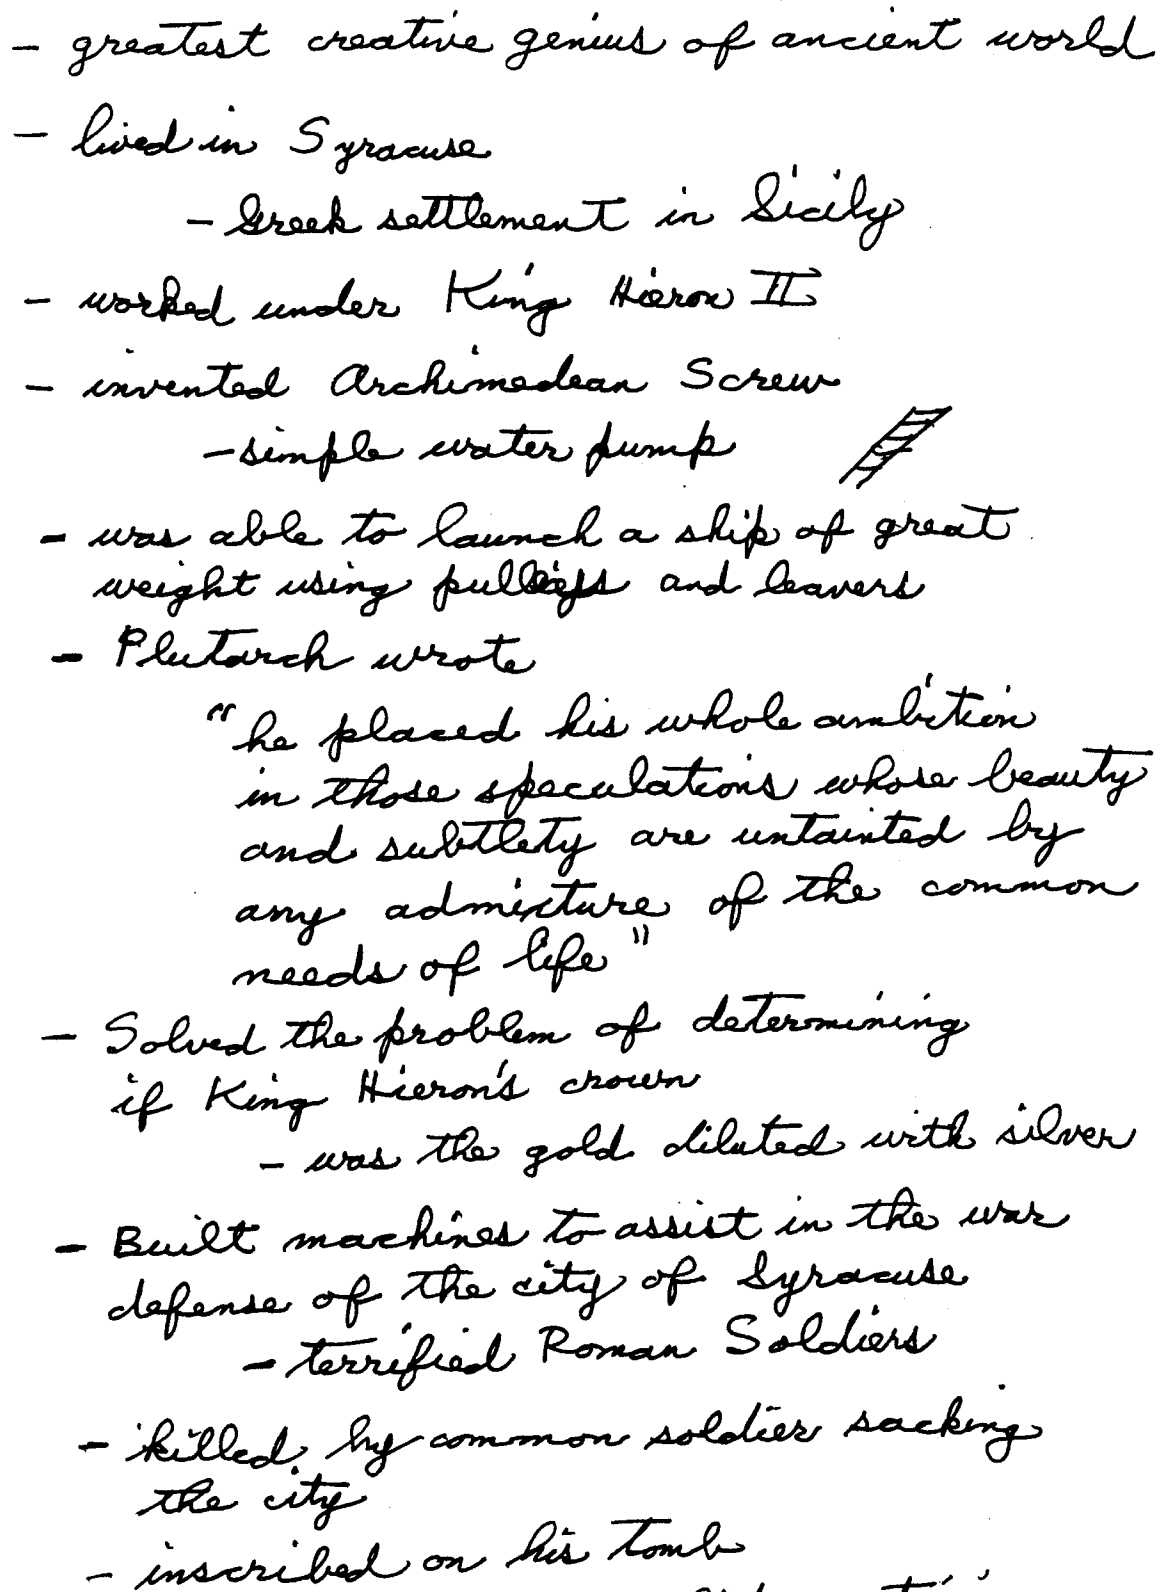 - greatest creative genius of ancient world
- lived in Syracuse
- Greek settlement in Sicily
- worked under King Hieron II
- invented Archimedean Screw
- simple water pump
- was able to launch a ship of great
weight using pulleys and leavers
- Plutarch wrote
"he placed his whole ambition
in those speculations whose beauty
and subtlety are untainted by
any admixture of the common
needs of life"
- Solved the problem of determining
if King Hieron's crown
- was the gold diluted with silver
- Built machines to assist in the war
defense of the city of Syracuse
- terrified Roman Soldiers
- killed by common soldier sacking
the city
- inscribed on his tomb